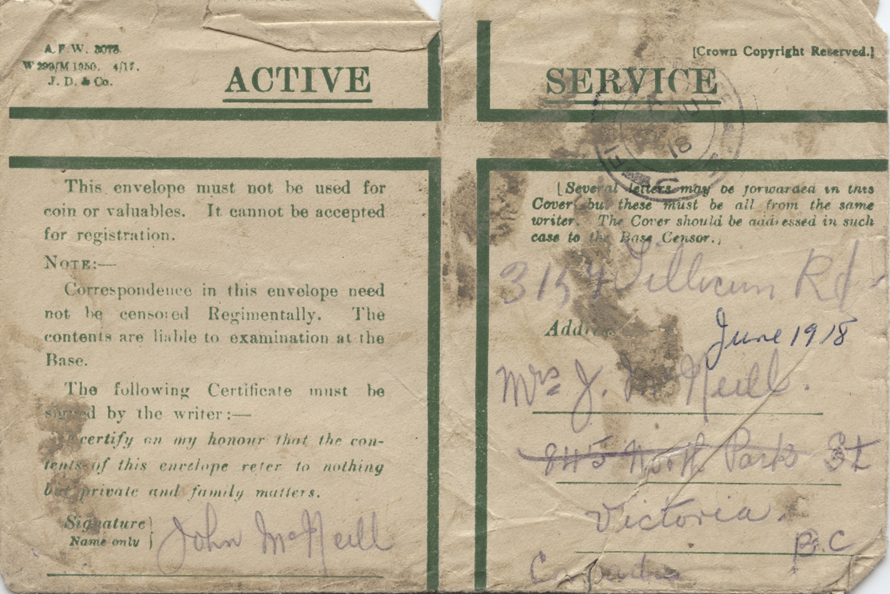 A.F.W. 3078.
W 299/M 1950. 4/17.
J. D. & Co.
ACTIVE
This envelope must not be used for
coin or valuables. It cannot be accepted
for registration.
NOTE:—
Correspondence in this envelope need
not be censored Regimentally. The
contents are liable to examination at the
Base.
The following Certificate must be
signed by the writer:—
I certify on my honour that the con-
tents of this envelope refer to nothing
but private and family matters.
Signature
Name only
John McNeill
[Crown Copyright Reserved.]
SERVICE
18
[Several letters may be forwarded in this
Cover, but these must be all from the same
writer. The Cover should be addressed in such
case to the Base Censor.]
Tillicum Rd
Address
June 1918
Mrs J. McNeill.
845 North Park St
Victoria.
B.C
Canada